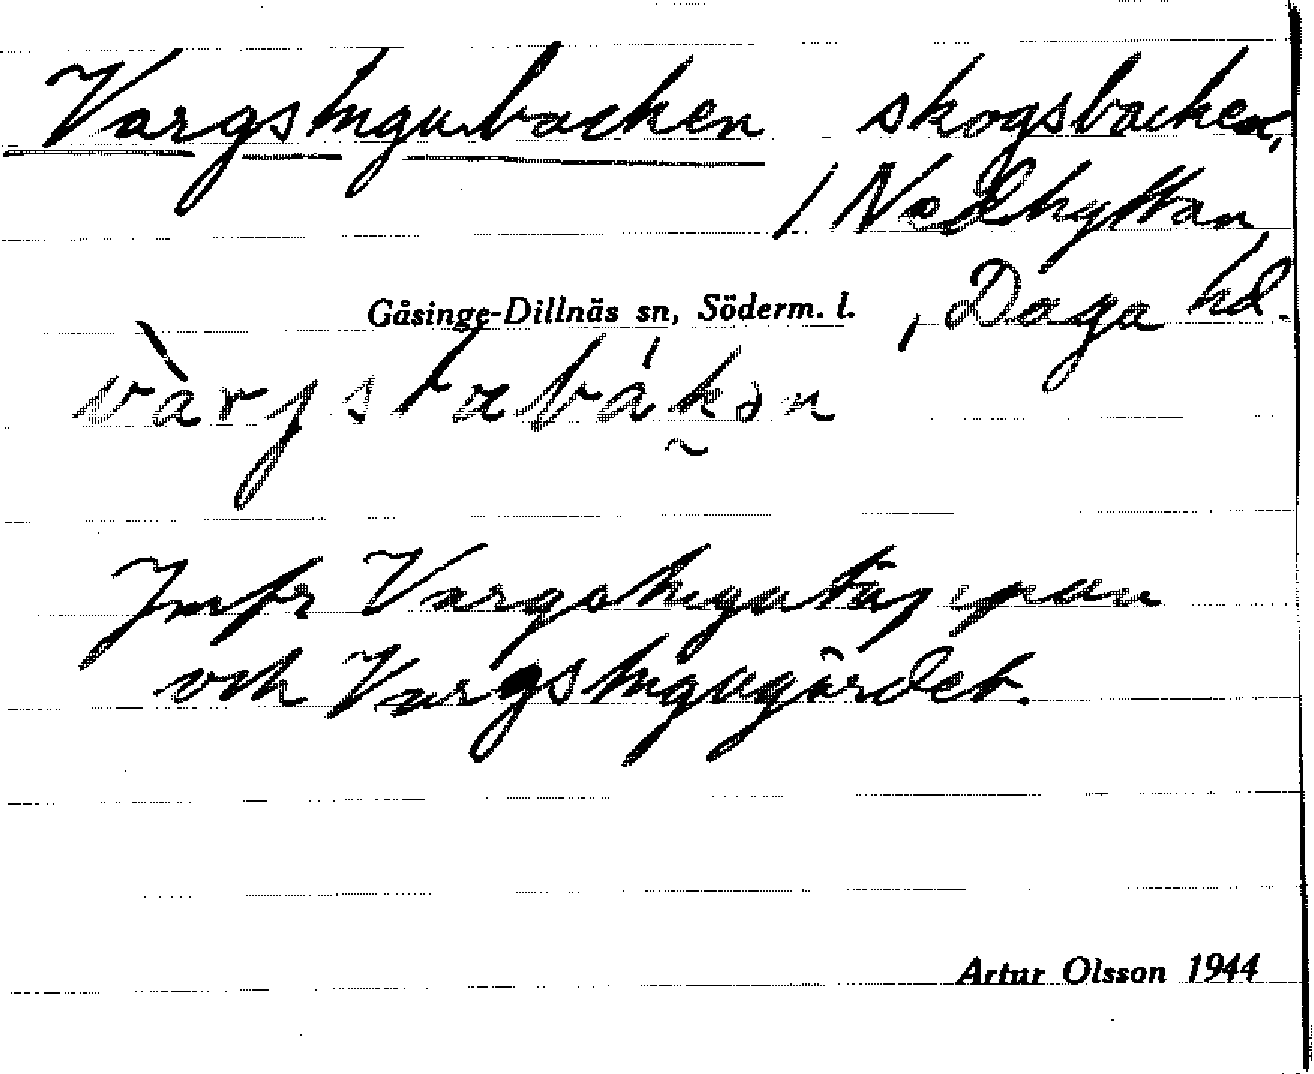 Vargstugubacken skogsbacke,
Gåsinge-Dillnäs sn, Söderm. l. , Daga hd.
vàrjstabákən
Jmfr Vargstugutäppan
och Vargstugugärdet.
Artur Olsson 1944